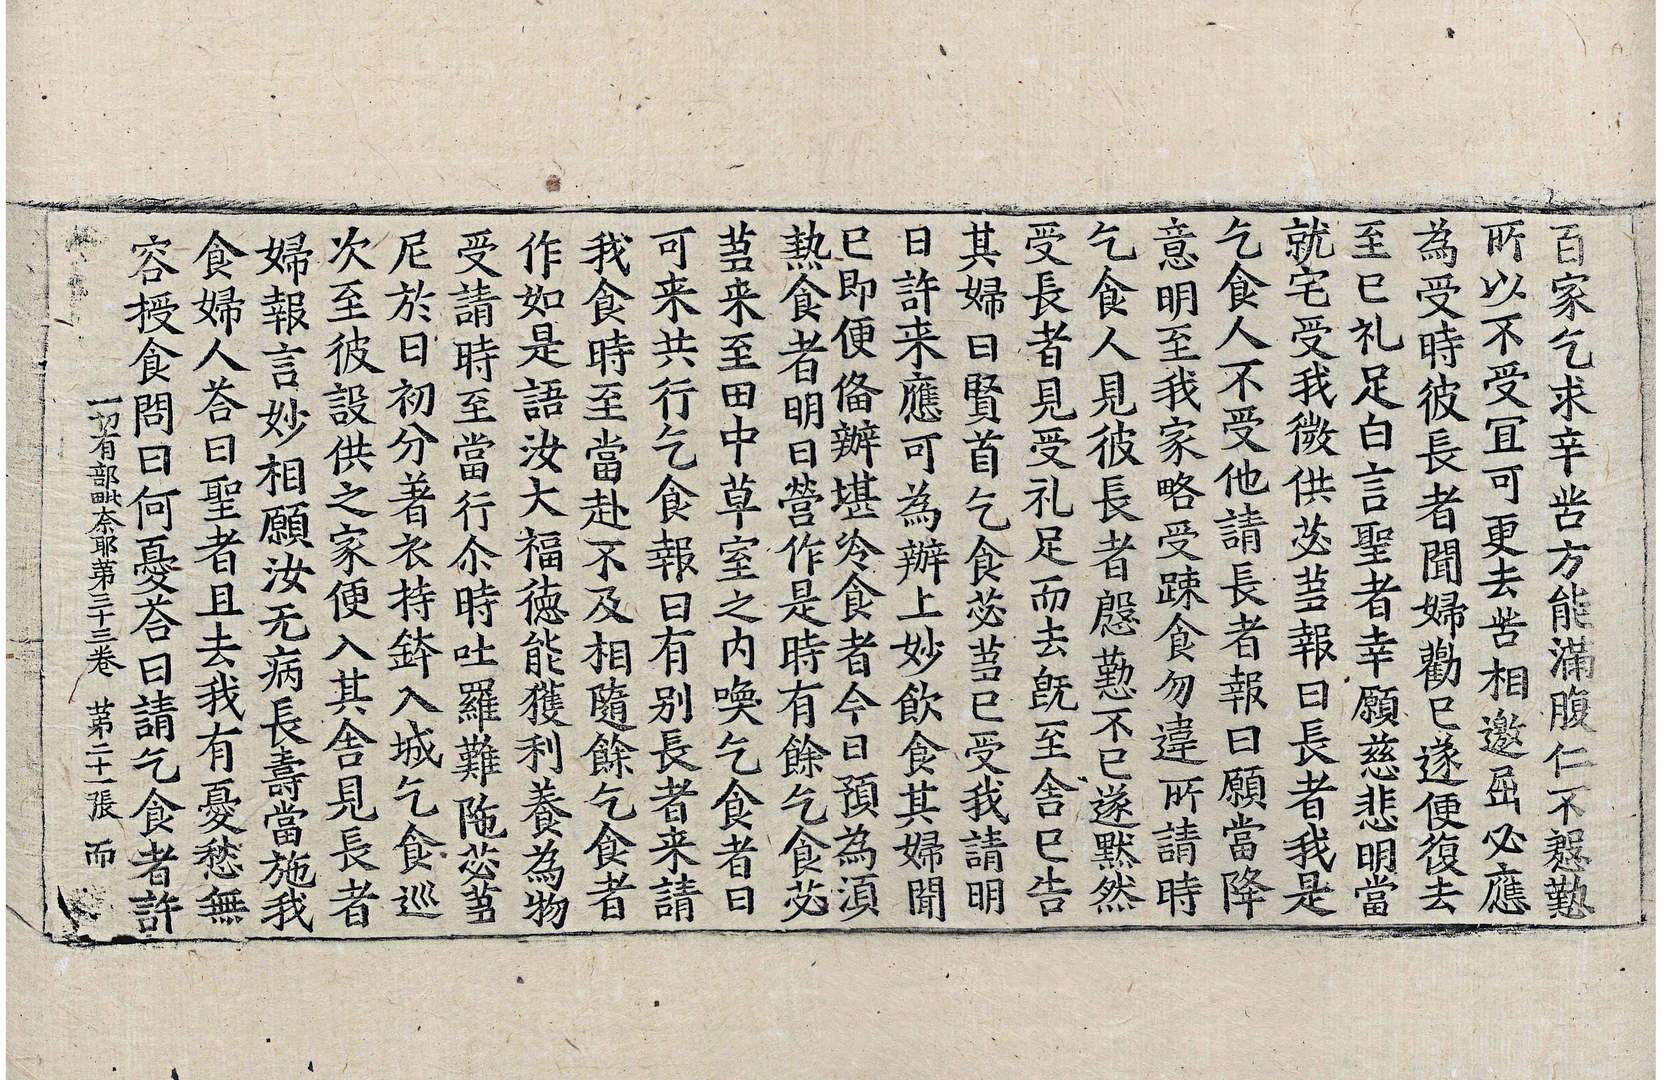 百家乞求辛苦方能滿腹仁不慇懃
所以不受宜可更去苦相邀屈必應
為受時彼長者聞婦勸已遂便復去
至已礼足白言聖者幸願慈悲明當
就宅受我微供苾蒭報曰長者我是
乞食人不受他請長者報曰願當降
意明至我家略受踈食勿違所請時
乞食人見彼長者慇懃不已遂默然
受長者見受礼足而去旣至舍已告
其婦曰賢首乞食苾蒭已受我請明
日許来應可為辦上妙飲食其婦聞
已即便俻辦堪冷食者今日預為湏
熱食者明日營作是時有餘乞食苾
蒭来至田中草室之内喚乞食者曰
可来共行乞食報曰有别長者来請
我食時至當赴不及相隨餘乞食者
作如是語汝大福德能獲利養為物
受請時至當行尒時吐羅難陁苾蒭
尼於日初分著衣持鉢入城乞食巡
次至彼設供之家便入其舍見長者
婦報言妙相願汝无病長壽當施我
食婦人荅曰聖者且去我有憂愁無
容授食問曰何憂荅曰請乞食者許
一切有部毗奈耶第三十三卷 第二十一張 而